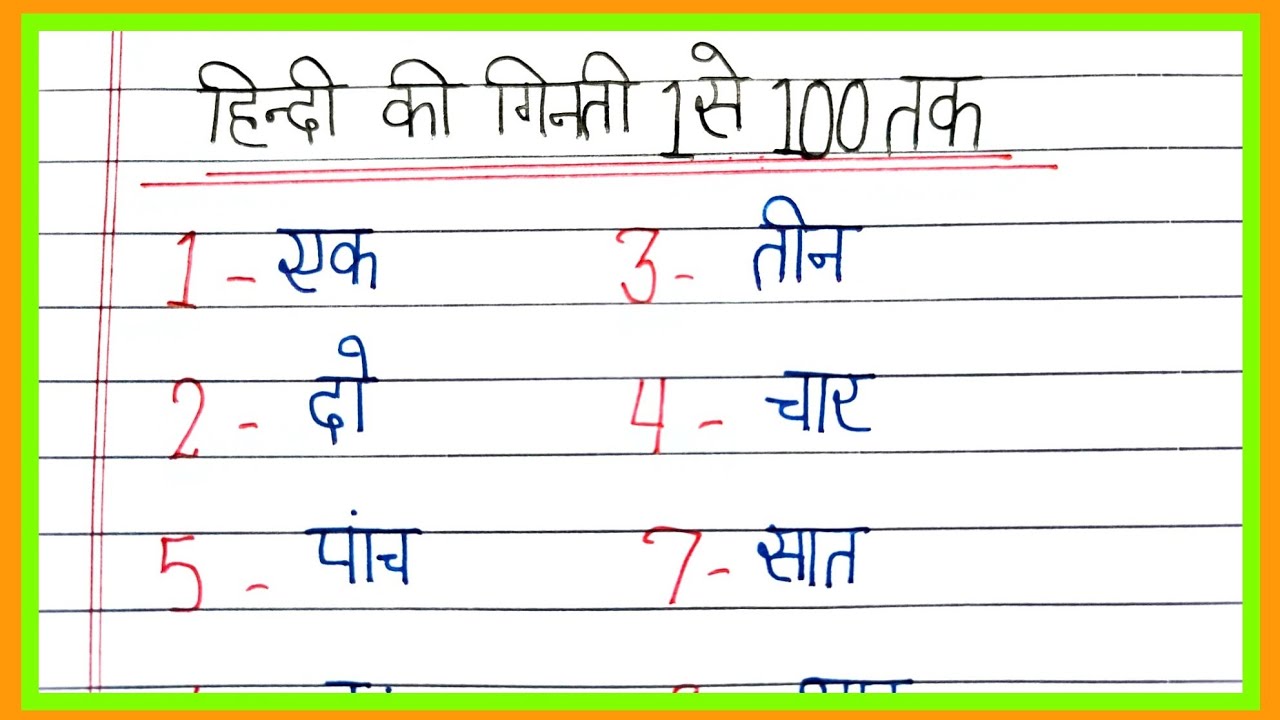 हिन्दी की गिनती 1 से 100 तक
1 - एक 3 - तीन
2 - दो 4 - चार
5 - पांच 7 - सात